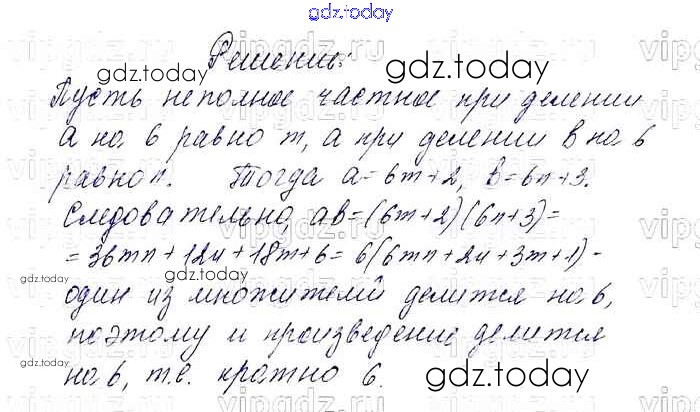 gdz.today
Решение:
gdz.today
gdz.today
Пусть неполное частное при делении
а на 6 равно m, а при делении в на 6
равно n. Тогда а=6m+2, в=6n+3.
gdz.today
Следовательно, ав=(6m+2)(6n+3)=
=36mn+12n+18m+6=6(6mn+2n+3m+1)-
gdz.today
gdz.today
один из множителей делится на 6,
поэтому и произведение делится
на 6, т.е. кратно 6.
gdz.today